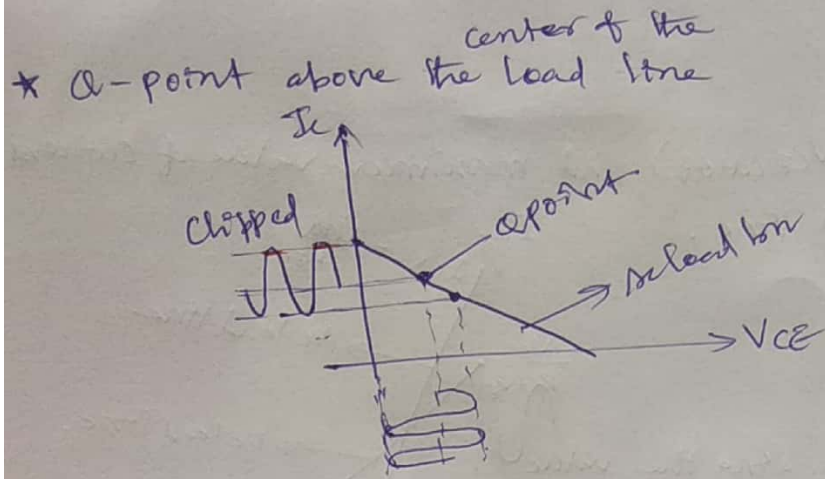 center of the
* Q-point above the load line
Ic
Clipped
Qpoint
DC load line
VCE